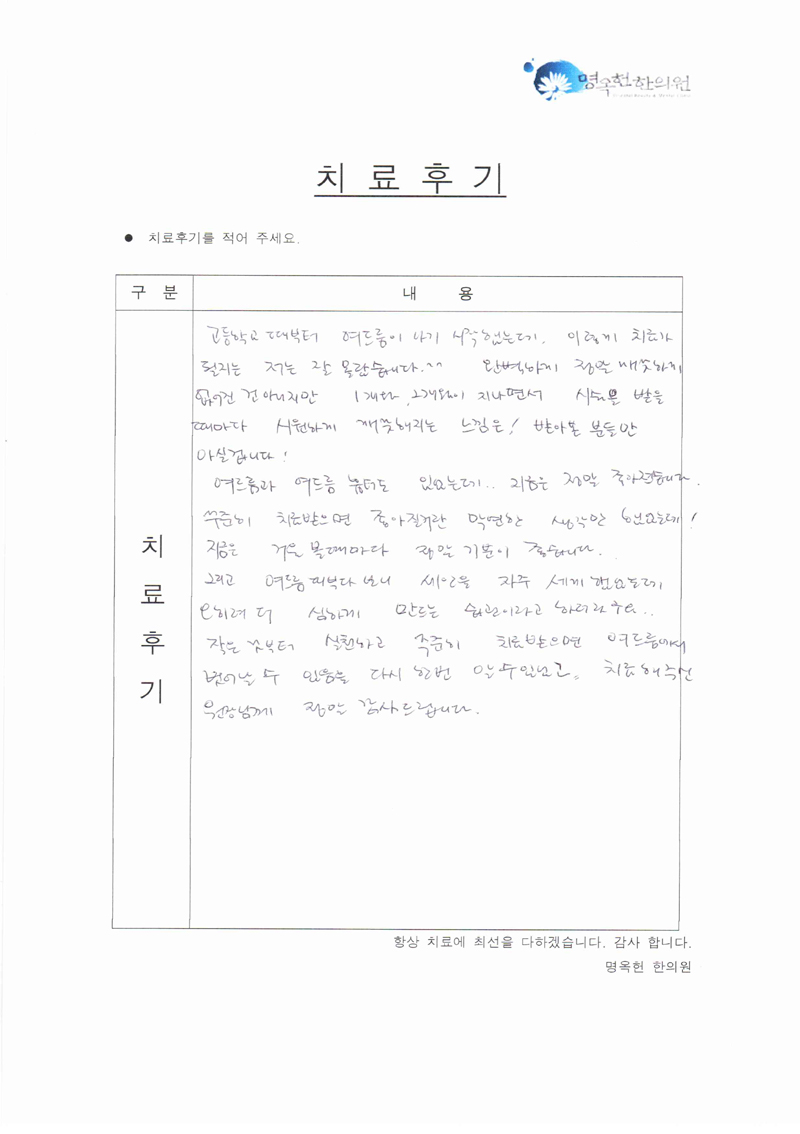 명옥헌한의원
치 료 후 기
● 치료후기를 적어 주세요.
구 분
내 용
치
료
후
기
고등학교 때부터 여드름이 나기 시작했는데. 이렇게 치료가
될지는 저는 잘 몰랐습니다.^^ 완벽하게 정말 깨끗하게
없어진 건 아니지만 1개월, 2개월이 지나면서 시술을 받을
때마다 시원하게 깨끗해지는 느낌은! 받아본 분들만
아실겁니다!
여드름과 여드름 흉터도 있었는데.. 지금은 정말 좋아졌습니다.
꾸준히 치료받으면 좋아질거란 막연한 생각만 했었는데!
지금은 거울 볼때마다 정말 기분이 좋습니다.
그리고 여드름 피부다 보니 세안을 자주 세게 했었는데
오히려 더 심하게 만드는 습관이라고 하더라구요..
작은 것부터 실천하고 꾸준히 치료받으면 여드름에서
벗어날 수 있음을 다시 한번 알 수 있었고, 치료해주신
원장님께 정말 감사드립니다.
항상 치료에 최선을 다하겠습니다. 감사 합니다.
명옥헌 한의원